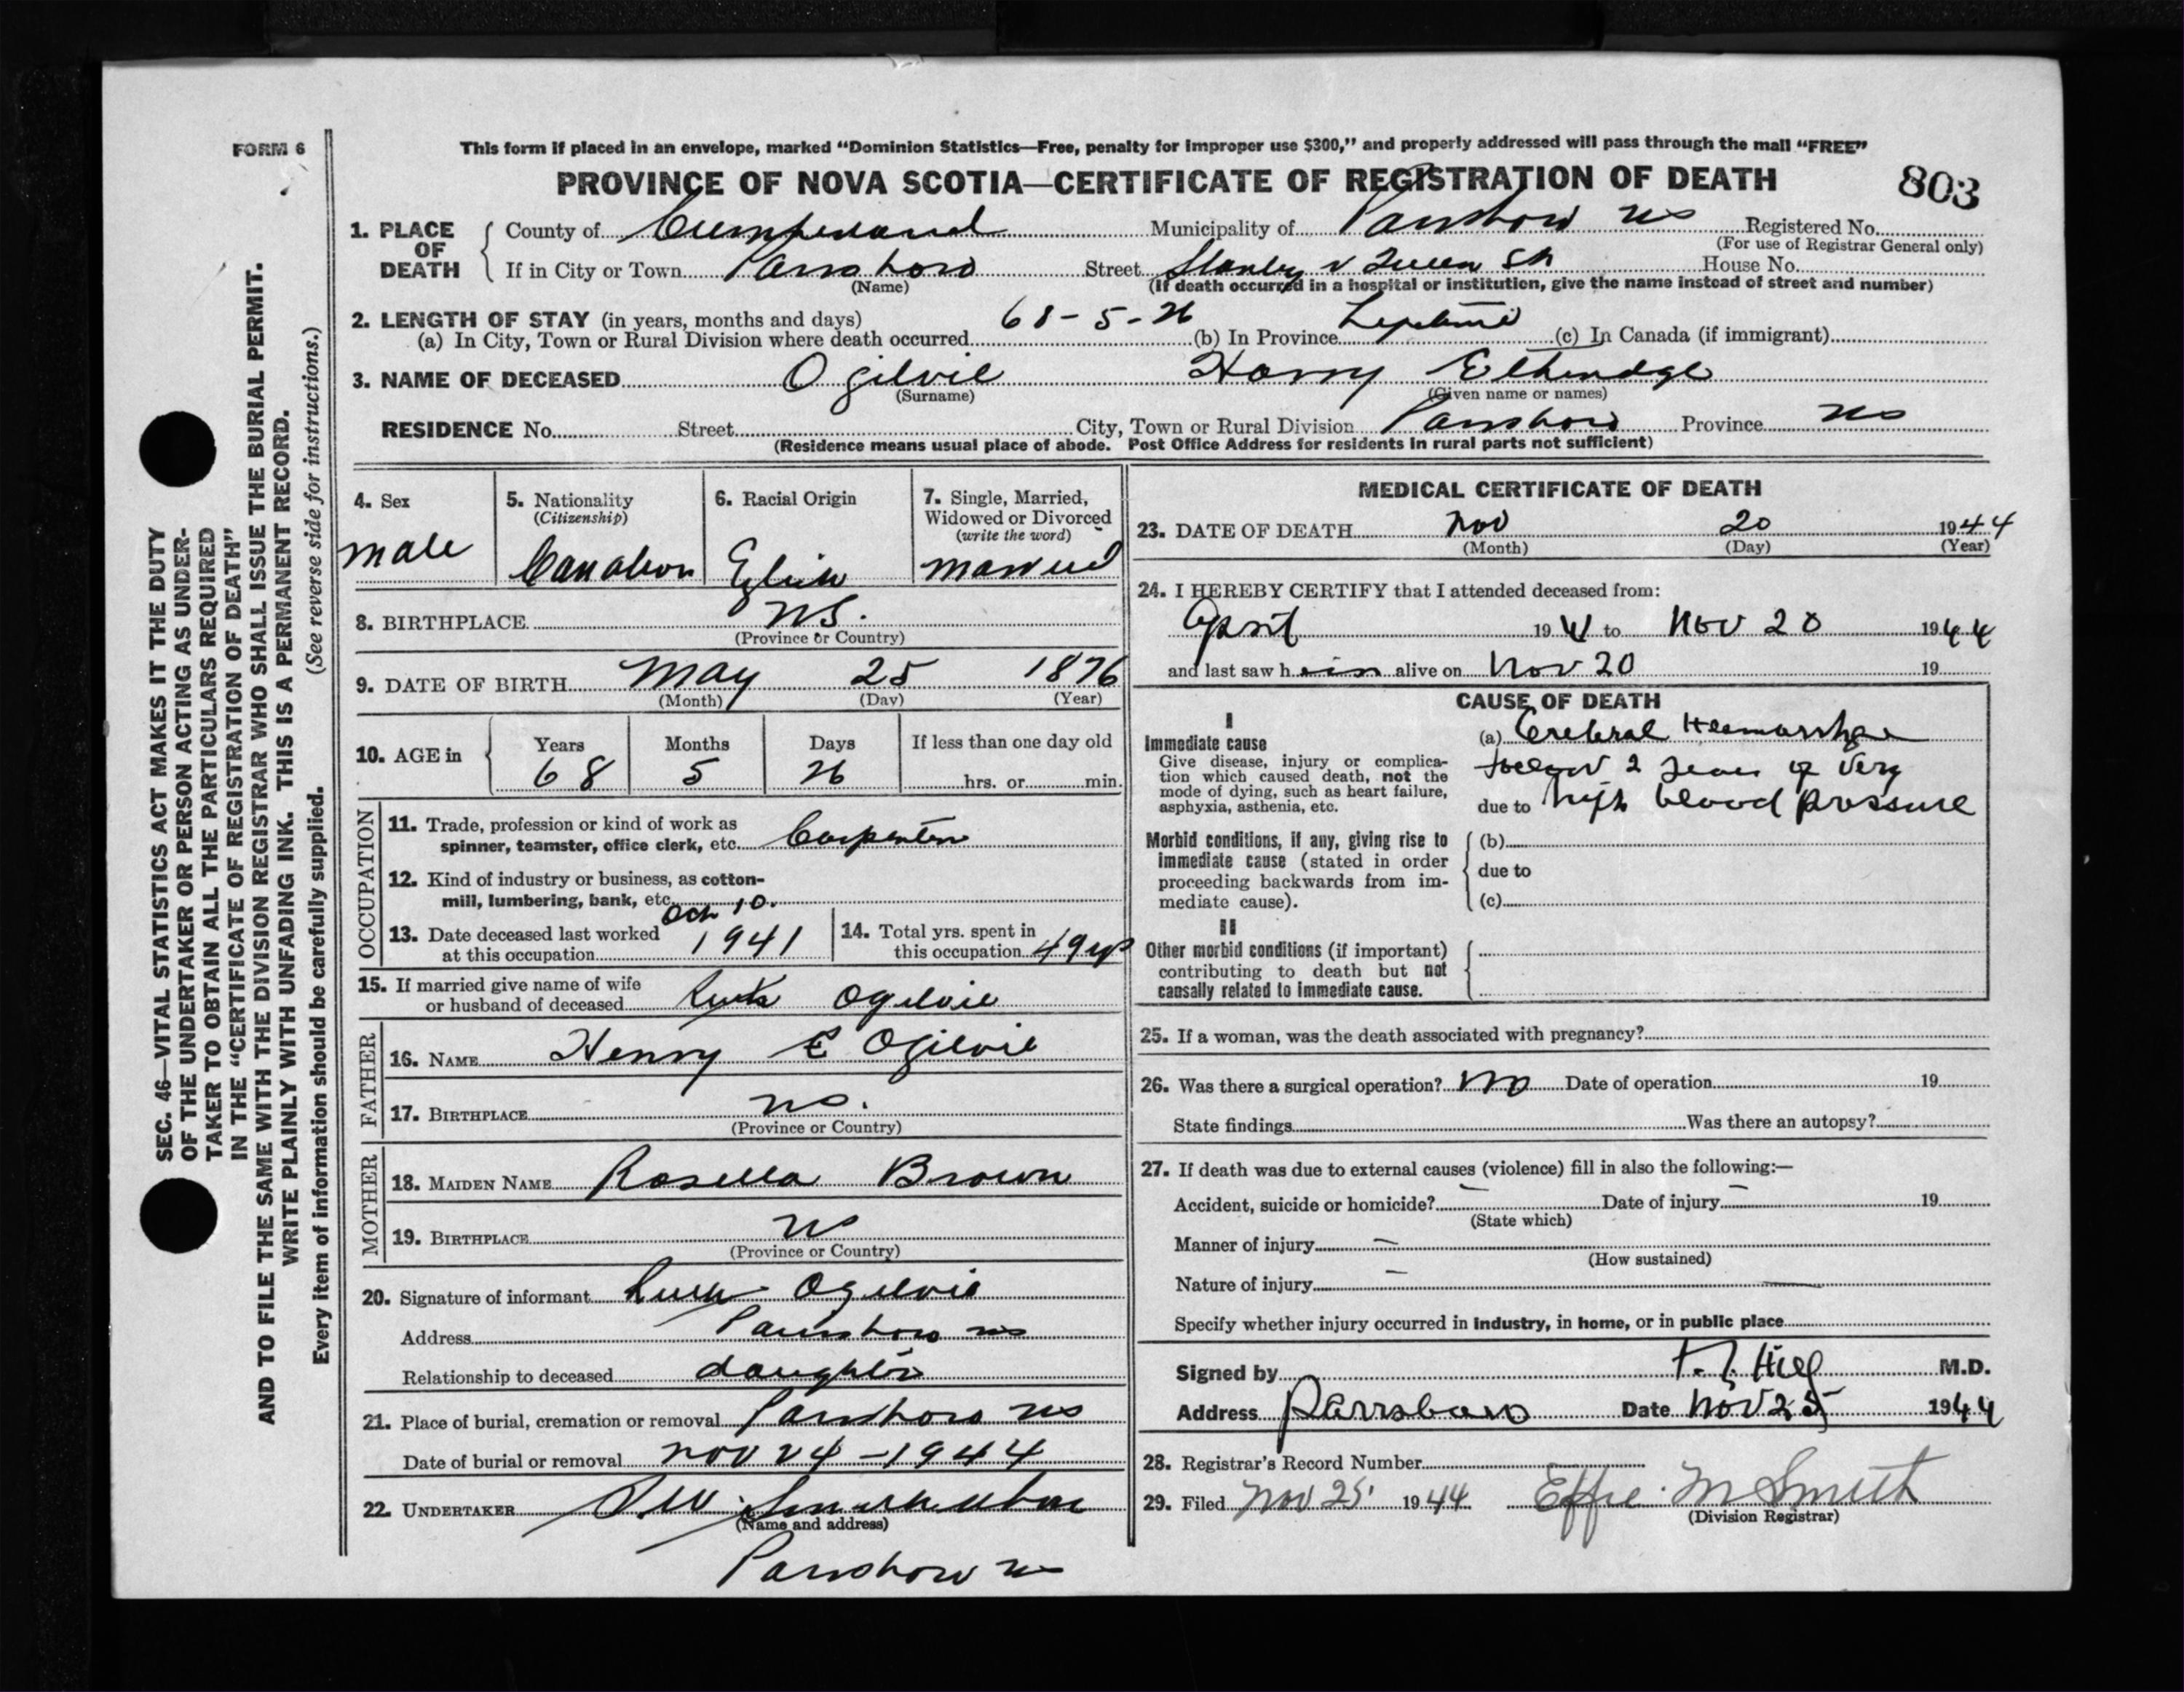 FORM 6
This form if placed in an envelope, marked “Dominion Statistics—Free, penalty for improper use $300,” and properly addressed will pass through the mail “FREE”
PROVINCE OF NOVA SCOTIA—CERTIFICATE OF REGISTRATION OF DEATH
803
1. PLACE OF DEATH
County of Cumberland Municipality of Parrsboro NS Registered No.
(For use of Registrar General only)
If in City or Town Parrsboro Street Stanley & Queen Sts House No.
(Name) (If death occurred in a hospital or institution, give the name instead of street and number)
2. LENGTH OF STAY (in years, months and days)
(a) In City, Town or Rural Division where death occurred 68-5-26 (b) In Province Lifetime (c) In Canada (if immigrant)
3. NAME OF DECEASED Ogilvie Harry
(Surname) (Given name or names)
RESIDENCE No. Street City, Town or Rural Division Parrsboro Province NS
(Residence means usual place of abode. Post Office Address for residents in rural parts not sufficient)
4. Sex
male
5. Nationality
(Citizenship)
Canadian
6. Racial Origin
7. Single, Married,
Widowed or Divorced
(write the word)
married
8. BIRTHPLACE NS.
(Province or Country)
9. DATE OF BIRTH May 25 1876
(Month) (Day) (Year)
10. AGE in
Years Months Days If less than one day old
68 5 26 hrs. or min.
OCCUPATION
11. Trade, profession or kind of work as
spinner, teamster, office clerk, etc. Carpenter
12. Kind of industry or business, as cotton-
mill, lumbering, bank, etc.
13. Date deceased last worked
at this occupation Oct 10. 1941
14. Total yrs. spent in
this occupation 49 yrs
15. If married give name of wife
or husband of deceased Ruth Ogilvie
FATHER
16. NAME Henry E Ogilvie
17. BIRTHPLACE NS.
(Province or Country)
MOTHER
18. MAIDEN NAME Rosella Brown
19. BIRTHPLACE NS
(Province or Country)
20. Signature of informant Ruth Ogilvie
Address Parrsboro NS
Relationship to deceased daughter
21. Place of burial, cremation or removal Parrsboro NS
Date of burial or removal Nov 24-1944
22. UNDERTAKER
(Name and address)
Parrsboro NS
MEDICAL CERTIFICATE OF DEATH
23. DATE OF DEATH Nov 20 1944
(Month) (Day) (Year)
24. I HEREBY CERTIFY that I attended deceased from:
April 1941 to Nov 20 1944
and last saw him alive on Nov 20 19
CAUSE OF DEATH
I
Immediate cause
Give disease, injury or complica-
tion which caused death, not the
mode of dying, such as heart failure,
asphyxia, asthenia, etc.
(a) Cerebral Hemorrhage
2 years of very
due to high blood pressure
Morbid conditions, if any, giving rise to
immediate cause (stated in order
proceeding backwards from im-
mediate cause).
(b)
due to
(c)
II
Other morbid conditions (if important)
contributing to death but not
causally related to immediate cause.
25. If a woman, was the death associated with pregnancy?
26. Was there a surgical operation? No Date of operation 19
State findings Was there an autopsy?
27. If death was due to external causes (violence) fill in also the following:—
Accident, suicide or homicide? — Date of injury — 19
(State which)
Manner of injury —
(How sustained)
Nature of injury —
Specify whether injury occurred in industry, in home, or in public place
Signed by Hill M.D.
Address Parrsboro Date Nov 25 1944
28. Registrar's Record Number
29. Filed Nov 25. 1944 Effie M Smith
(Division Registrar)
SEC. 46—VITAL STATISTICS ACT MAKES IT THE DUTY
OF THE UNDERTAKER OR PERSON ACTING AS UNDER-
TAKER TO OBTAIN ALL THE PARTICULARS REQUIRED
IN THE “CERTIFICATE OF REGISTRATION OF DEATH”
AND TO FILE THE SAME WITH THE DIVISION REGISTRAR WHO SHALL ISSUE THE BURIAL PERMIT.
WRITE PLAINLY WITH UNFADING INK. THIS IS A PERMANENT RECORD.
Every item of information should be carefully supplied. (See reverse side for instructions.)